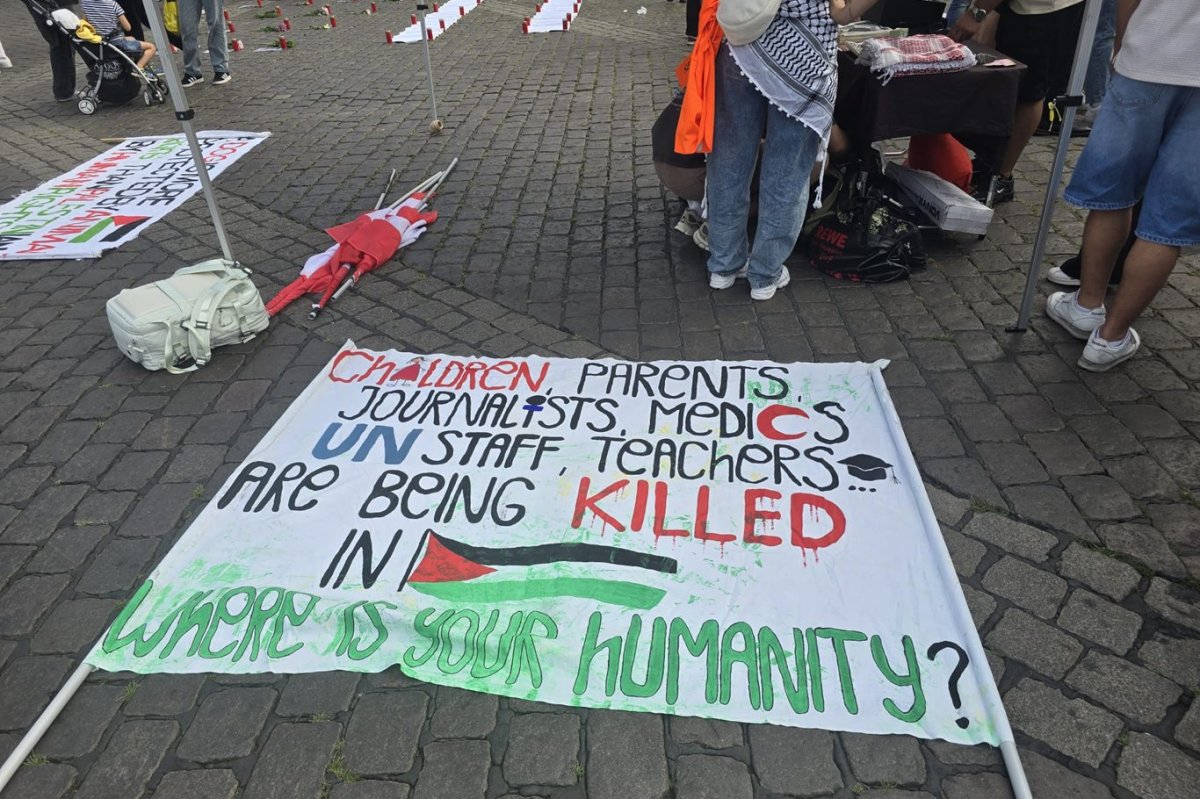 CHILDREN, PARENTS,
JOURNALISTS, MEDICS
UN STAFF, TEACHERS...
ARE BEING KILLED
IN
WHERE IS YOUR HUMANITY?
REWE